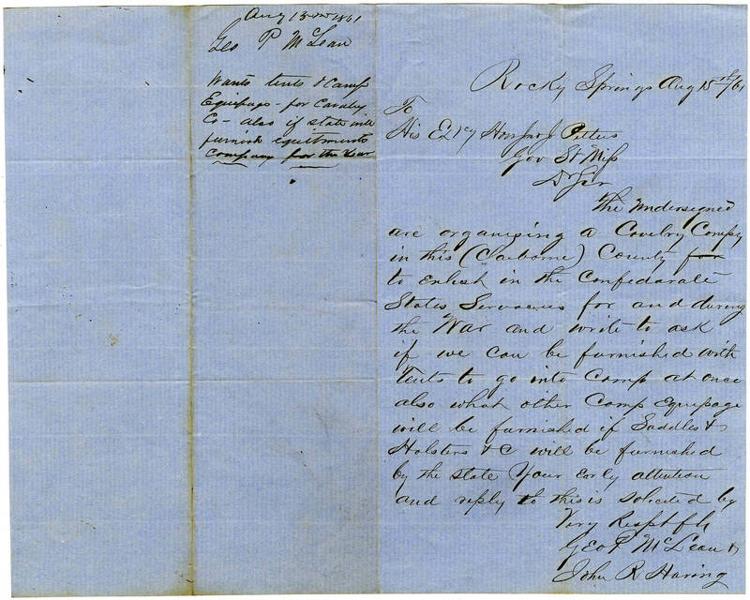 Aug 15 1861
Geo P McLean
Wants tents & Camp
Equipage - for Cavalry
Co - also if state will
furnish equitments
Company for the War
Rocky Springs Aug 15 /61
To
His Excy Jno J Pettus
Gov St Miss
Dr Sir
The undersigned
are organising a Cavelry Compy
in this (Claiborne) County for
to enlist in the Confedarate
States Servaces for and during
the War and write to ask
if we can be furnished with
Tents to go into Camp at once
also what other Camp Equipage
will be furnished if Saddles &
Holsters &C will be furnished
by the State Your Early attention
and reply to this is solicited by
Very Respt
Geo P McLean &
John R Haring